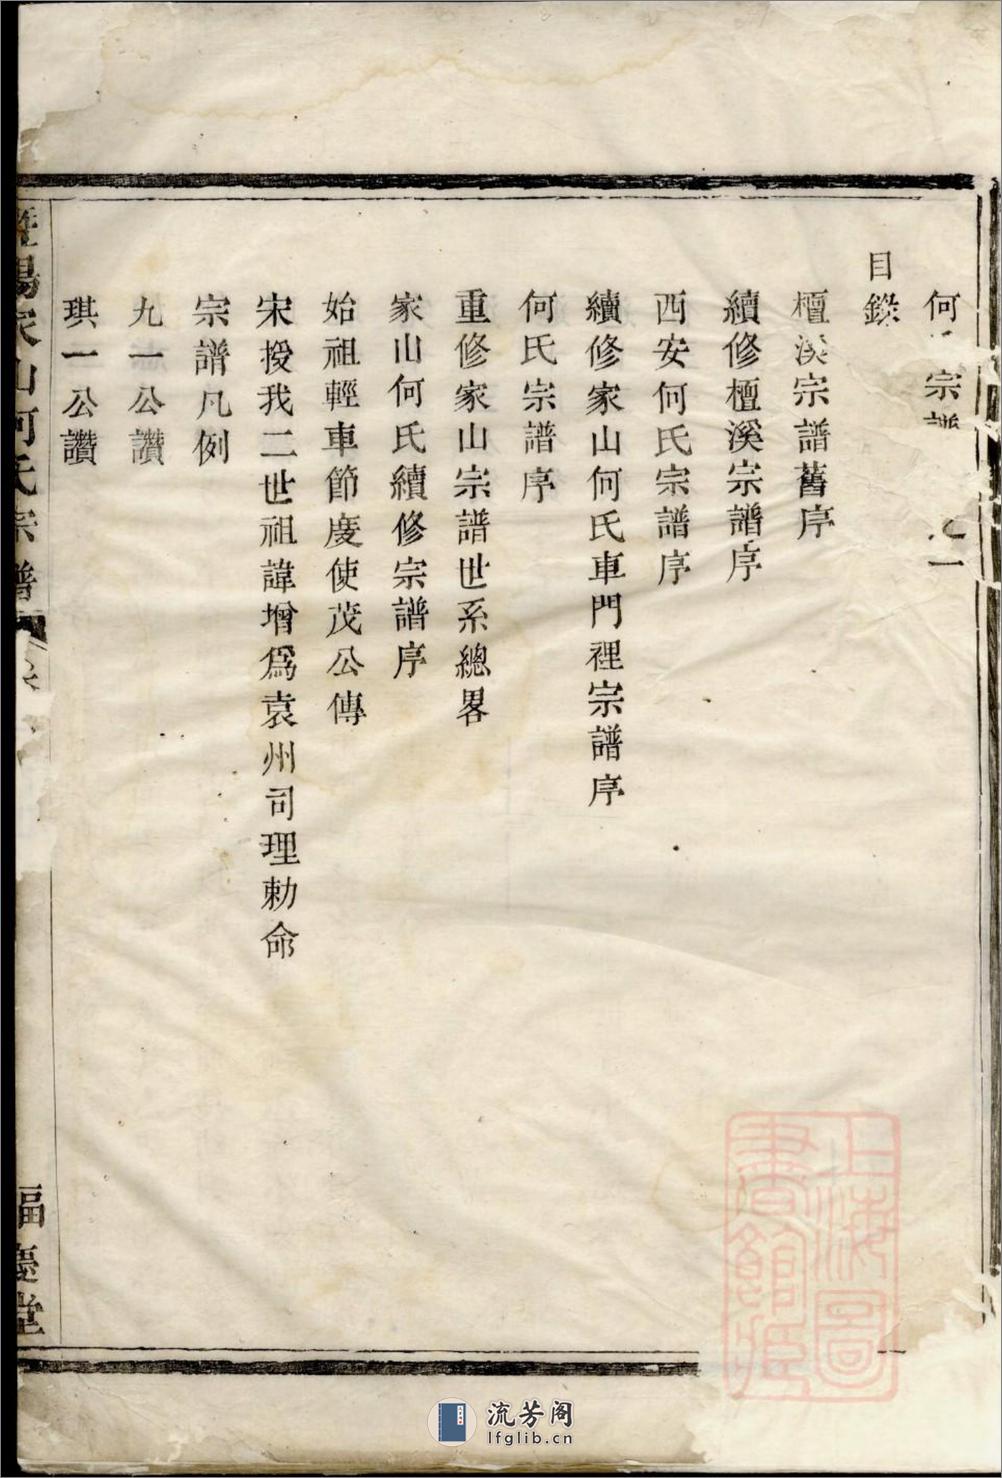 何 宗譜 一
目錄
檀溪宗譜舊序
續修檀溪宗譜序
西安何氏宗譜序
續修家山何氏車門裡宗譜序
何氏宗譜序
重修家山宗譜世系總畧
家山何氏續修宗譜序
始祖輕車節度使茂公傳
宋授我二世祖諱增爲袁州司理勅命
宗譜凡例
九一公讚
琪一公讚
暨陽家山何氏宗譜
福慶堂
上海圖書館藏
流芳阁
lfglib.cn